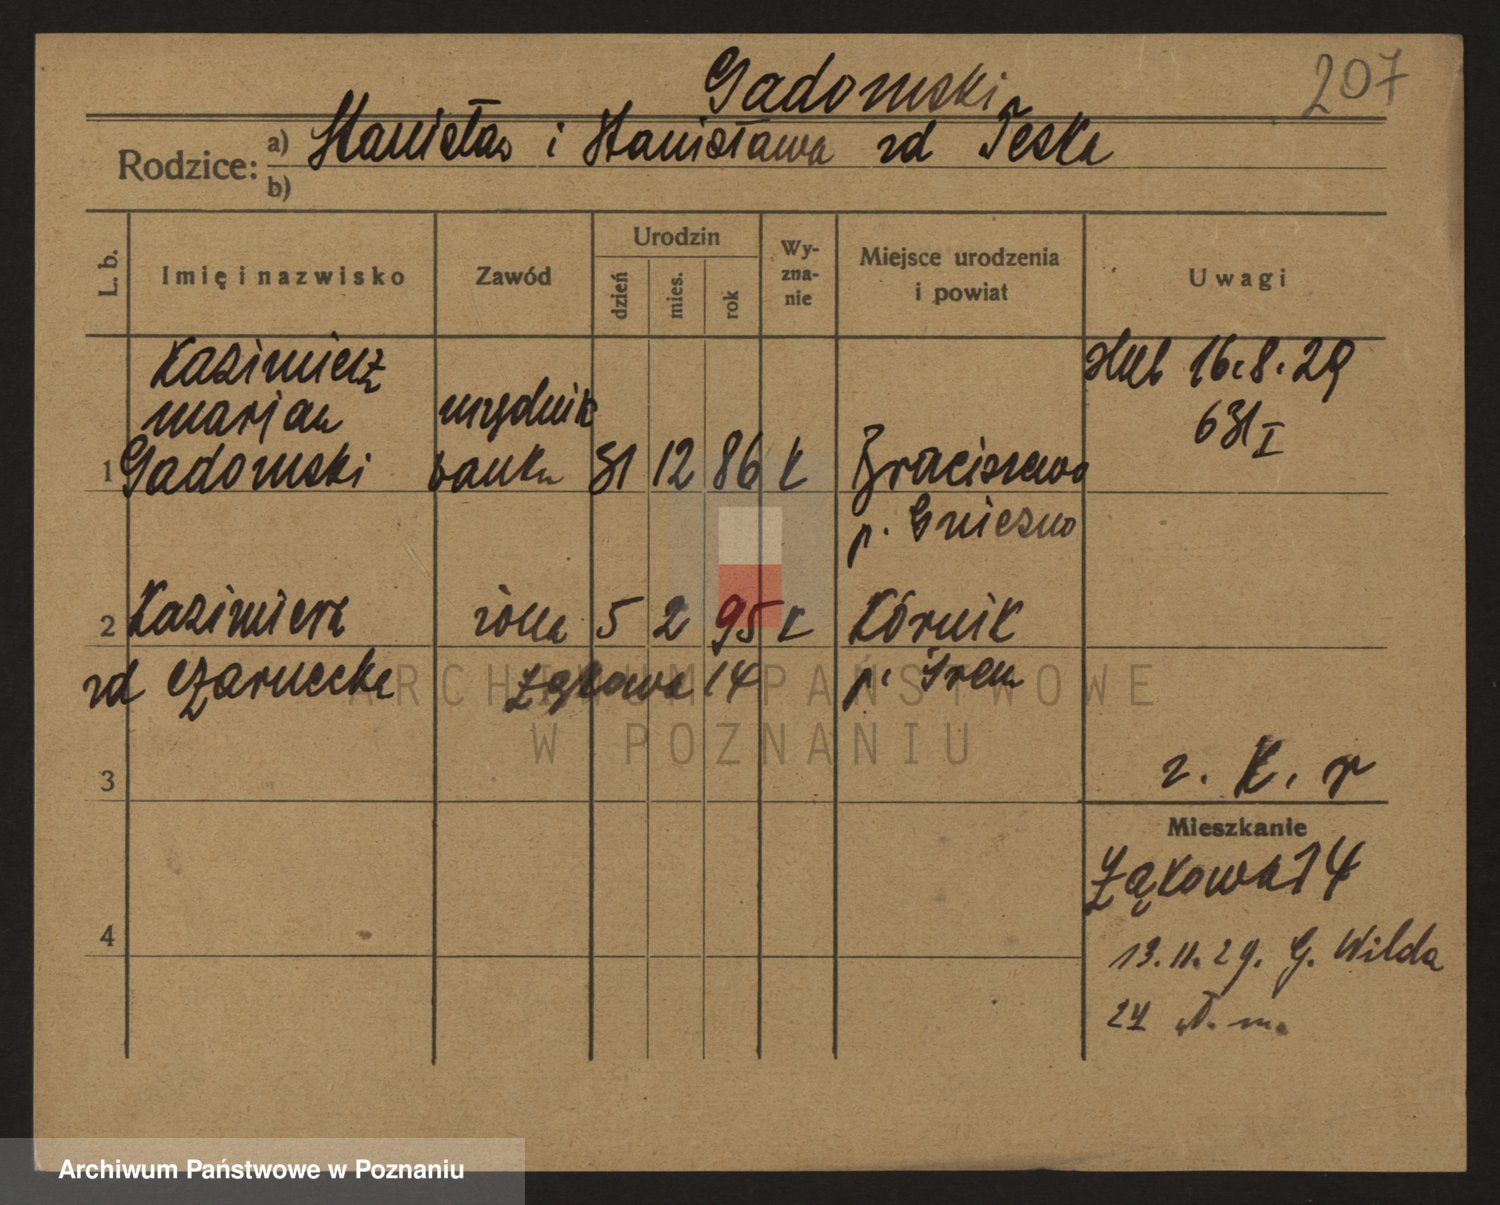 Gadomski
207
Rodzice: a) Stanisław i Stanisława zd Teska
b)
L. b.
Imię i nazwisko
Zawód
Urodzin
dzień
mies.
rok
Wy-
zna-
nie
Miejsce urodzenia
i powiat
Uwagi
Kazimierz
marjan
1 Gadomski
urzędnik
banku
31 12 86 K
Braciszewo
p. Gniezno
ślub 16.8.29
631 I
2 Kazimiera
zd Czarnecka
żona 5 2 95 K
Łąkowa 14
Kórnik
p. Śrem
3
z. K. p
Mieszkanie
Łąkowa 14
4
13.11.29. G. Wilda
24
ARCHIWUM PAŃSTWOWE
W POZNANIU
Archiwum Państwowe w Poznaniu